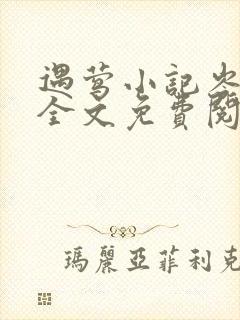 遇莺小记
全文免費閱
瑪麗亞菲利克